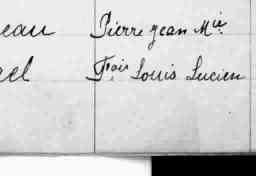 eau Pierre Jean Mie
el Frois Louis Lucien